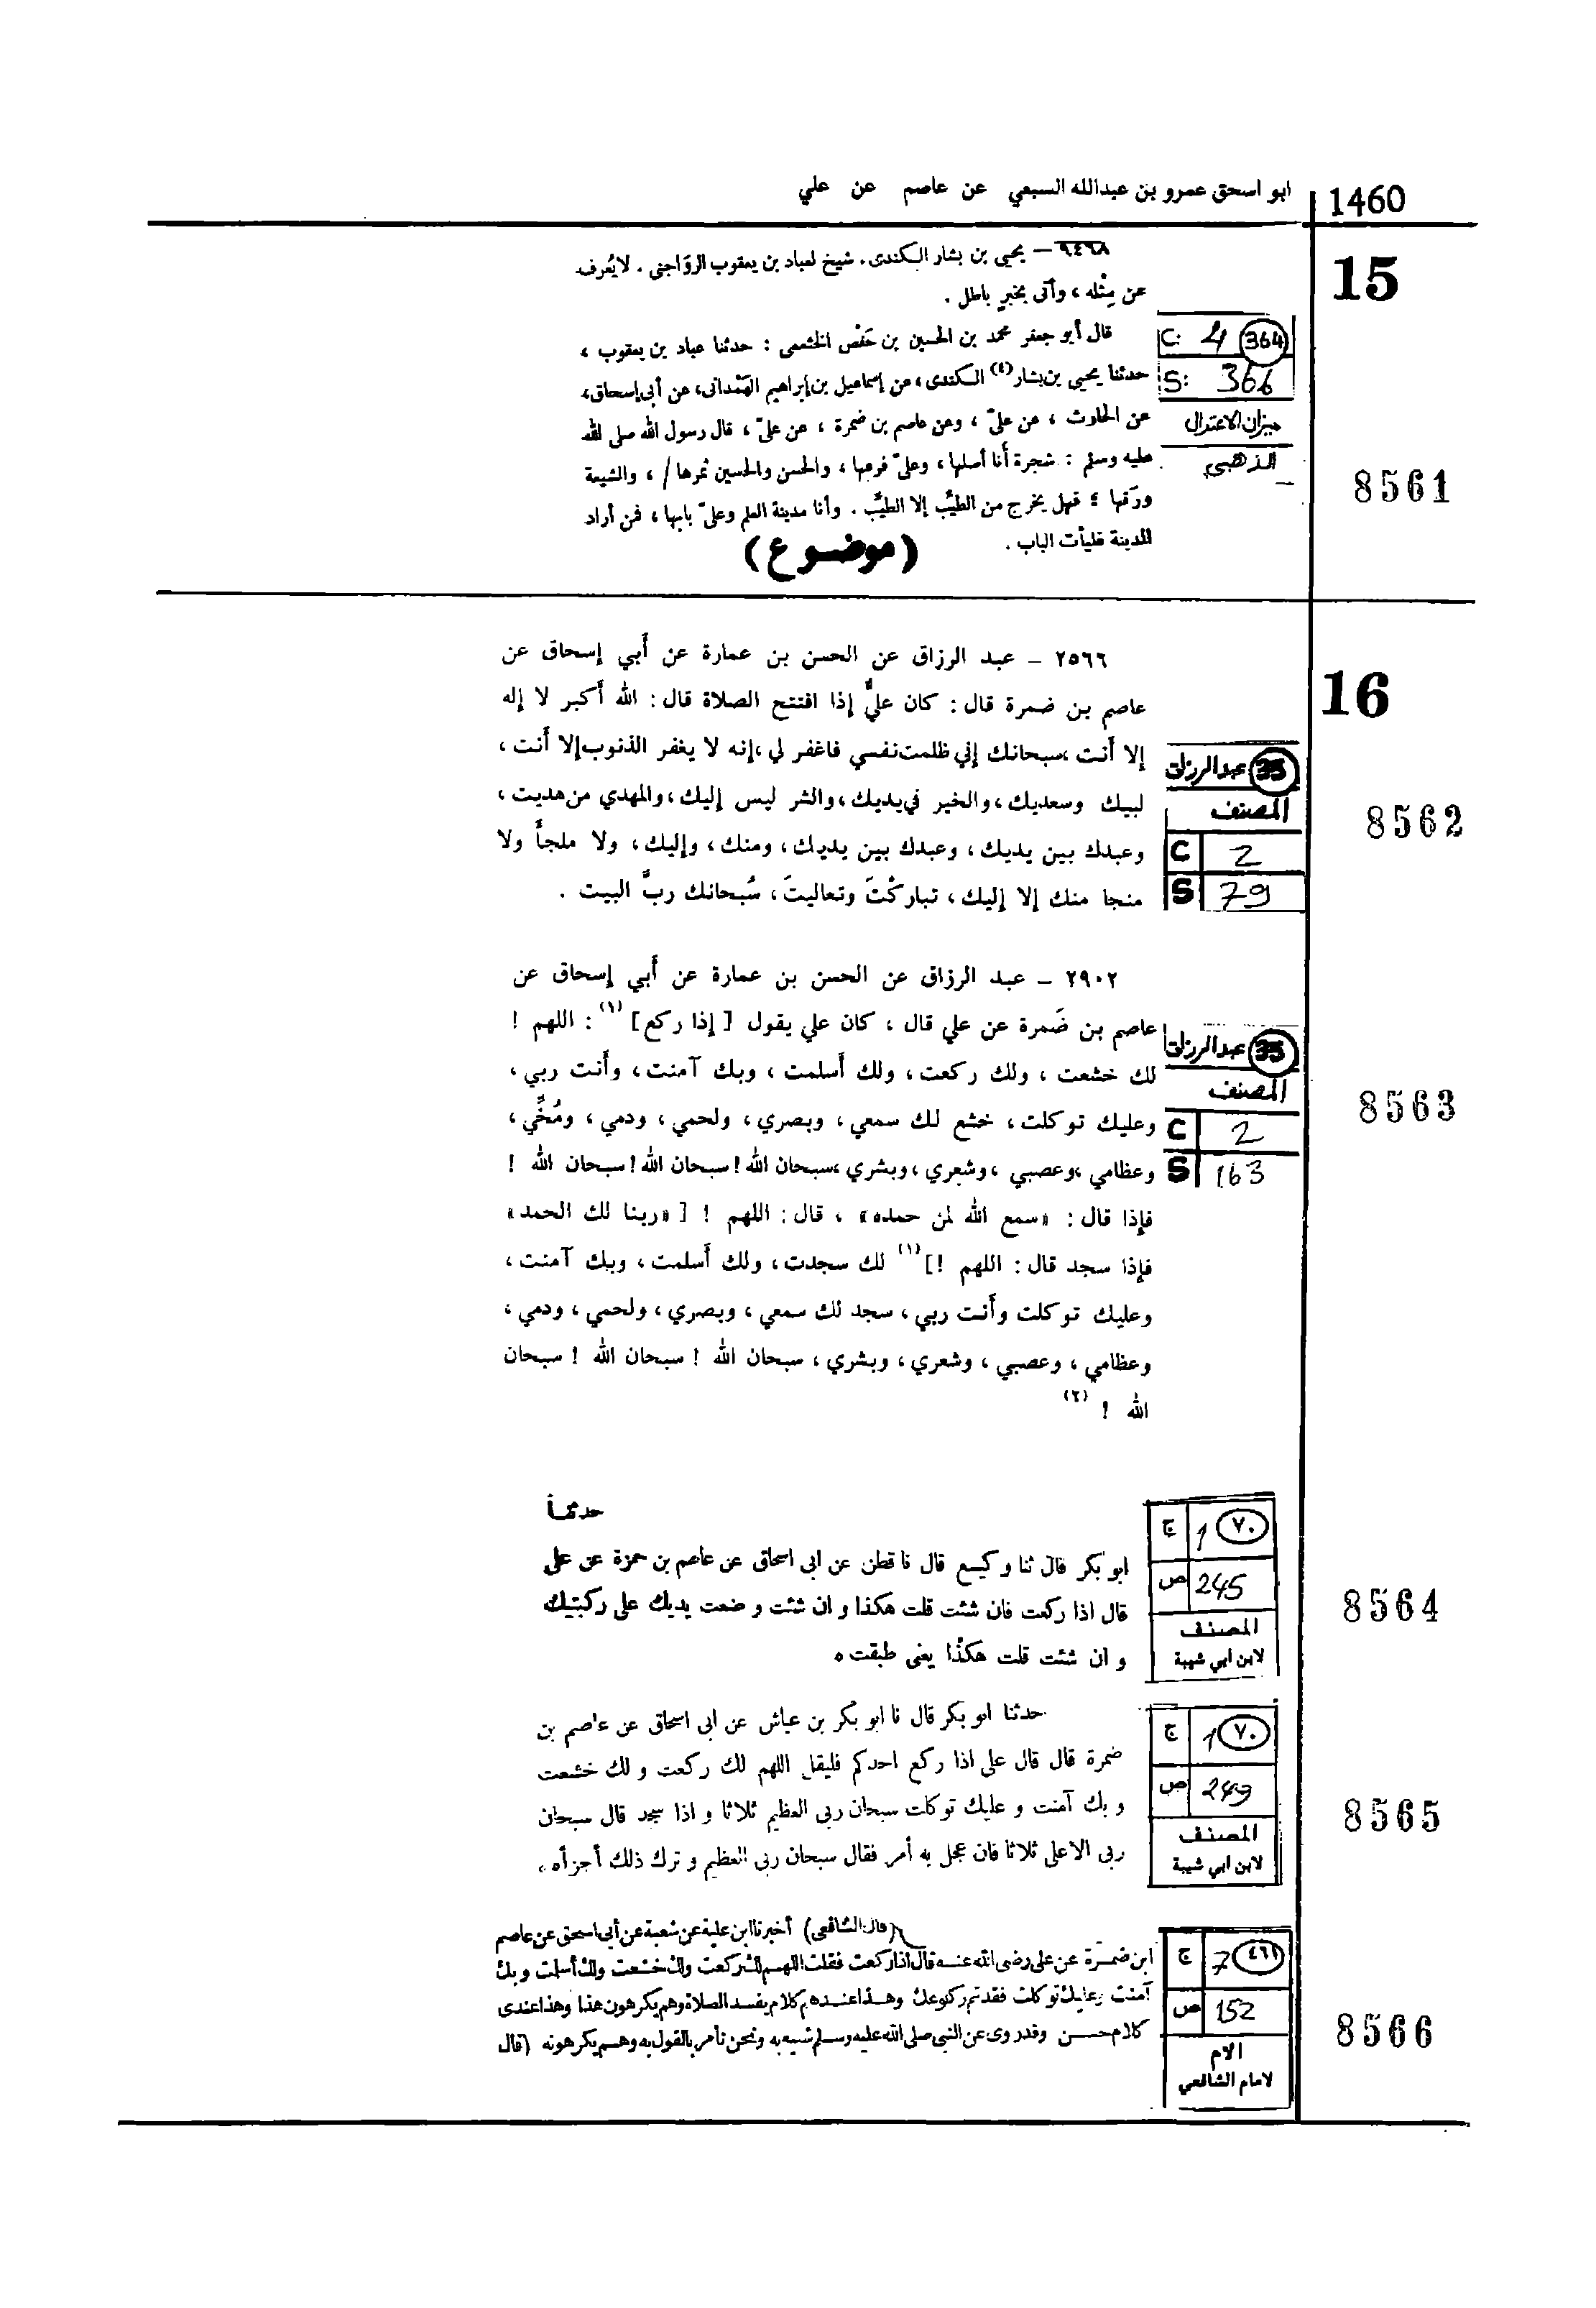 1460
ابو اسحق عمرو بن عبدالله السبعي عن عاصم عن علي
15
٩٤٦٨ – يحيى بن بشار الكندى. شيخ لعباد بن يعقوب الرَّواجنى . لا يُعرف
عن مِثْله ، وأتى بخبرٍ باطل .
قال أبو جعفر محمد بن الحسين بن حَفْص الخثعمى : حدثنا عباد بن يعقوب ،
حدثنا يحيى بن بشار (٤) الكندى، عن إسماعيل بن إبراهيم الهَمْدانى، عن أبى إسحاق،
عن الحارث ، عن علىّ ، وعن عاصم بن ضمرة ، عن علىّ ، قال رسول الله صلى الله
عليه وسلم : شجرة أنا أصلها ، وعلىّ فرعها ، والحسن والحسين ثمرها / ، والشيعة
ورقها ؛ فهل يخرج من الطيِّب إلا الطيِّب . وأنا مدينة العلم وعلىّ بابها ، فمن أراد
المدينة فليأت الباب .
(موضوع)
C: 4 364
S: 366
ميزان الاعتدال
الذهبي
8561
16
٢٥٦٦ – عبد الرزاق عن الحسن بن عمارة عن أَبي إسحاق عن
عاصم بن ضمرة قال : كان عليٌّ إذا افتتح الصلاة قال : الله أَكبر لا إله
إلا أَنت ، سبحانك إني ظلمت نفسي فاغفر لي ، إنه لا يغفر الذنوب إلا أَنت ،
لبيك وسعديك ، والخير في يديك ، والشر ليس إليك ، والمهدي من هديت ،
وعبدك بين يديك ، وعبدك بين يديك ، ومنك ، وإليك ، ولا ملجأَ ولا
منجا منك إلا إليك ، تباركْتَ وتعاليتَ ، سُبحانك ربَّ البيت .
35 عبد الرزاق
المصنف
C 2
S 79
8562
٢٩٠٢ – عبد الرزاق عن الحسن بن عمارة عن أَبي إسحاق عن
عاصم بن ضَمرة عن علي قال ، كان علي يقول [ إذا ركع ] (١) : اللهم !
لك خشعت ، ولك ركعت ، ولك أَسلمت ، وبك آمنت ، وأَنت ربي ،
وعليك توكلت ، خشع لك سمعي ، وبصري ، ولحمي ، ودمي ، ومُخِّي ،
وعظامي ، وعصبي ، وشعري ، وبشري ، سبحان الله ! سبحان الله ! سبحان الله !
فإذا قال : «سمع الله لمن حمده» ، قال : اللهم ! [ «ربنا لك الحمد»
فإذا سجد قال : اللهم ! ] (١) لك سجدت ، ولك أَسلمت ، وبك آمنت ،
وعليك توكلت وأَنت ربي ، سجد لك سمعي ، وبصري ، ولحمي ، ودمي ،
وعظامي ، وعصبي ، وشعري ، وبشري ، سبحان الله ! سبحان الله ! سبحان
الله ! (٢)
35 عبد الرزاق
المصنف
C 2
S 163
8563
حدثنا
ابو بكر قال ثنا وكيع قال نا قطن عن ابى اسحاق عن عاصم بن حمزة عن على
قال اذا ركعت فان شئت قلت هكذا و ان شئت و ضعت يديك على ركبتيك
و ان شئت قلت هكذا يعنى طبقت ه
ج 1 ٧٠
ص 245
المصنف
لابن ابي شيبة
8564
حدثنا ابو بكر قال نا ابو بكر بن عياش عن ابى اسحاق عن عاصم بن
ضمرة قال قال على اذا ركع احدكم فليقل اللهم لك ركعت و لك خشعت
و بك آمنت و عليك توكلت سبحان ربى العظيم ثلاثا و اذا سجد قال سبحان
ربى الاعلى ثلاثا فان عجل به أمر فقال سبحان ربى العظيم و ترك ذلك أجزأه ،
ج 1 ٧٠
ص 249
المصنف
لابن ابي شيبة
8565
(قال الشافعى) أخبرنا ابن علية عن شعبة عن أبى اسحق عن عاصم
ابن ضمرة عن على رضى الله عنه قال اذا ركعت فقلت اللهم لك ركعت ولك خشعت ولك أسلمت وبك
آمنت وعليك توكلت فقد تم ركوعك وهذا عندهم كلام يفسد الصلاة وهم يكرهون هذا وهذا عندى
كلام حسن وقد روى عن النبى صلى الله عليه وسلم شبيه به ونحن نأمر بالقول به وهم يكرهونه (قال
ج 7 ٤٦١
ص 152
الام
لامام الشافعي
8566